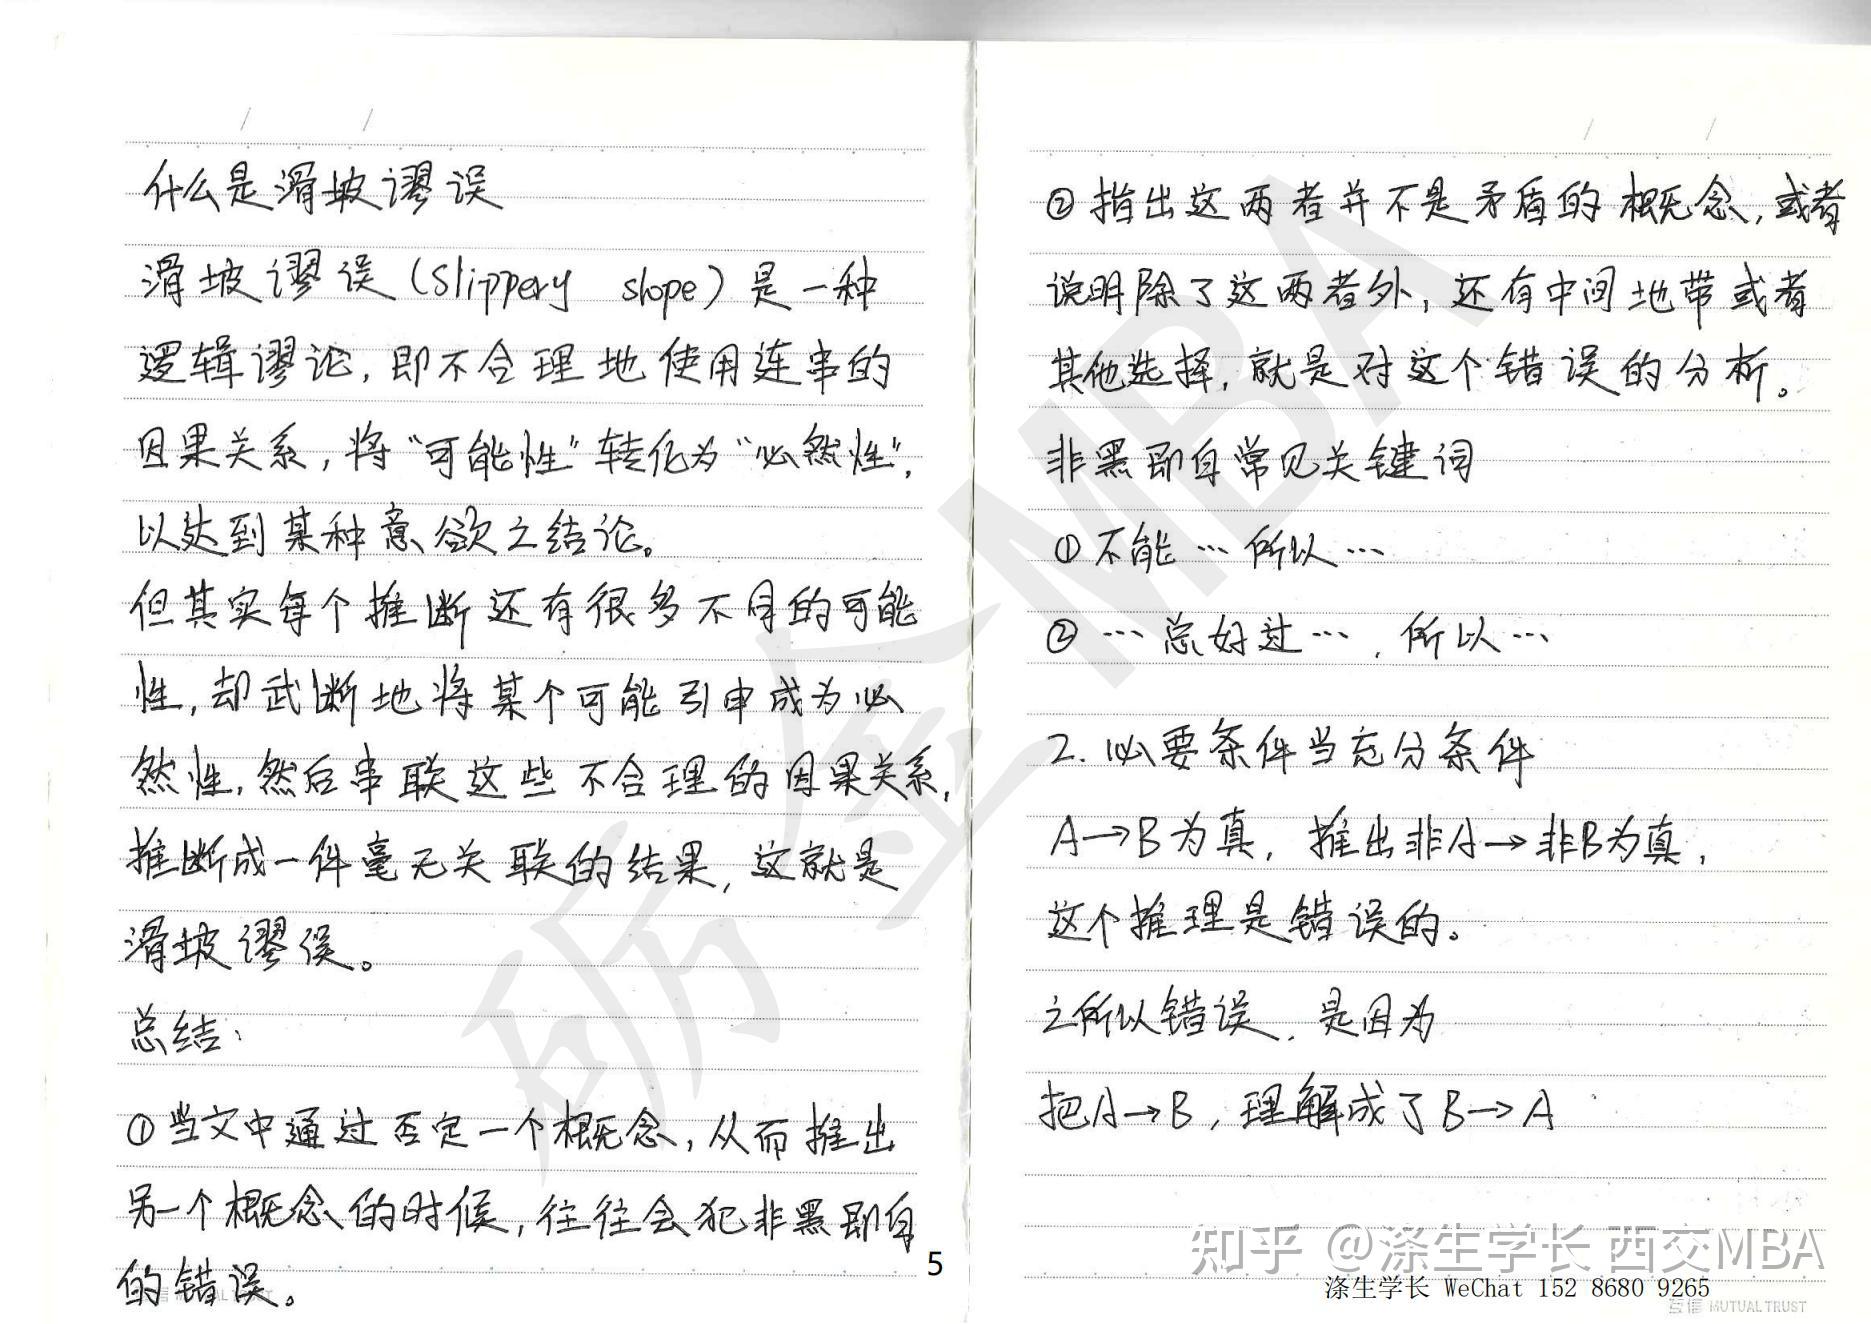 什么是滑坡谬误
滑坡谬误(Slippery slope)是一种
逻辑谬论,即不合理地使用连串的
因果关系,将“可能性”转化为“必然性”,
以达到某种意欲之结论。
但其实每个推断还有很多不同的可能
性,却武断地将某个可能引申成为必
然性,然后串联这些不合理的因果关系,
推断成一件毫无关联的结果,这就是
滑坡谬误。
总结:
①当文中通过否定一个概念,从而推出
另一个概念的时候,往往会犯非黑即白
的错误。
5
②指出这两者并不是矛盾的概念,或者
说明除了这两者外,还有中间地带或者
其他选择,就是对这个错误的分析。
非黑即白常见关键词
①不能…所以…
②…总好过…,所以…
2.必要条件当充分条件
A→B为真,推出非A→非B为真,
这个推理是错误的。
之所以错误,是因为
把A→B,理解成了B→A
砺金MBA
知乎 @涤生学长 西交MBA
涤生学长 WeChat 152 8680 9265
互信 MUTUAL TRUST
互信 MUTUAL TRUST